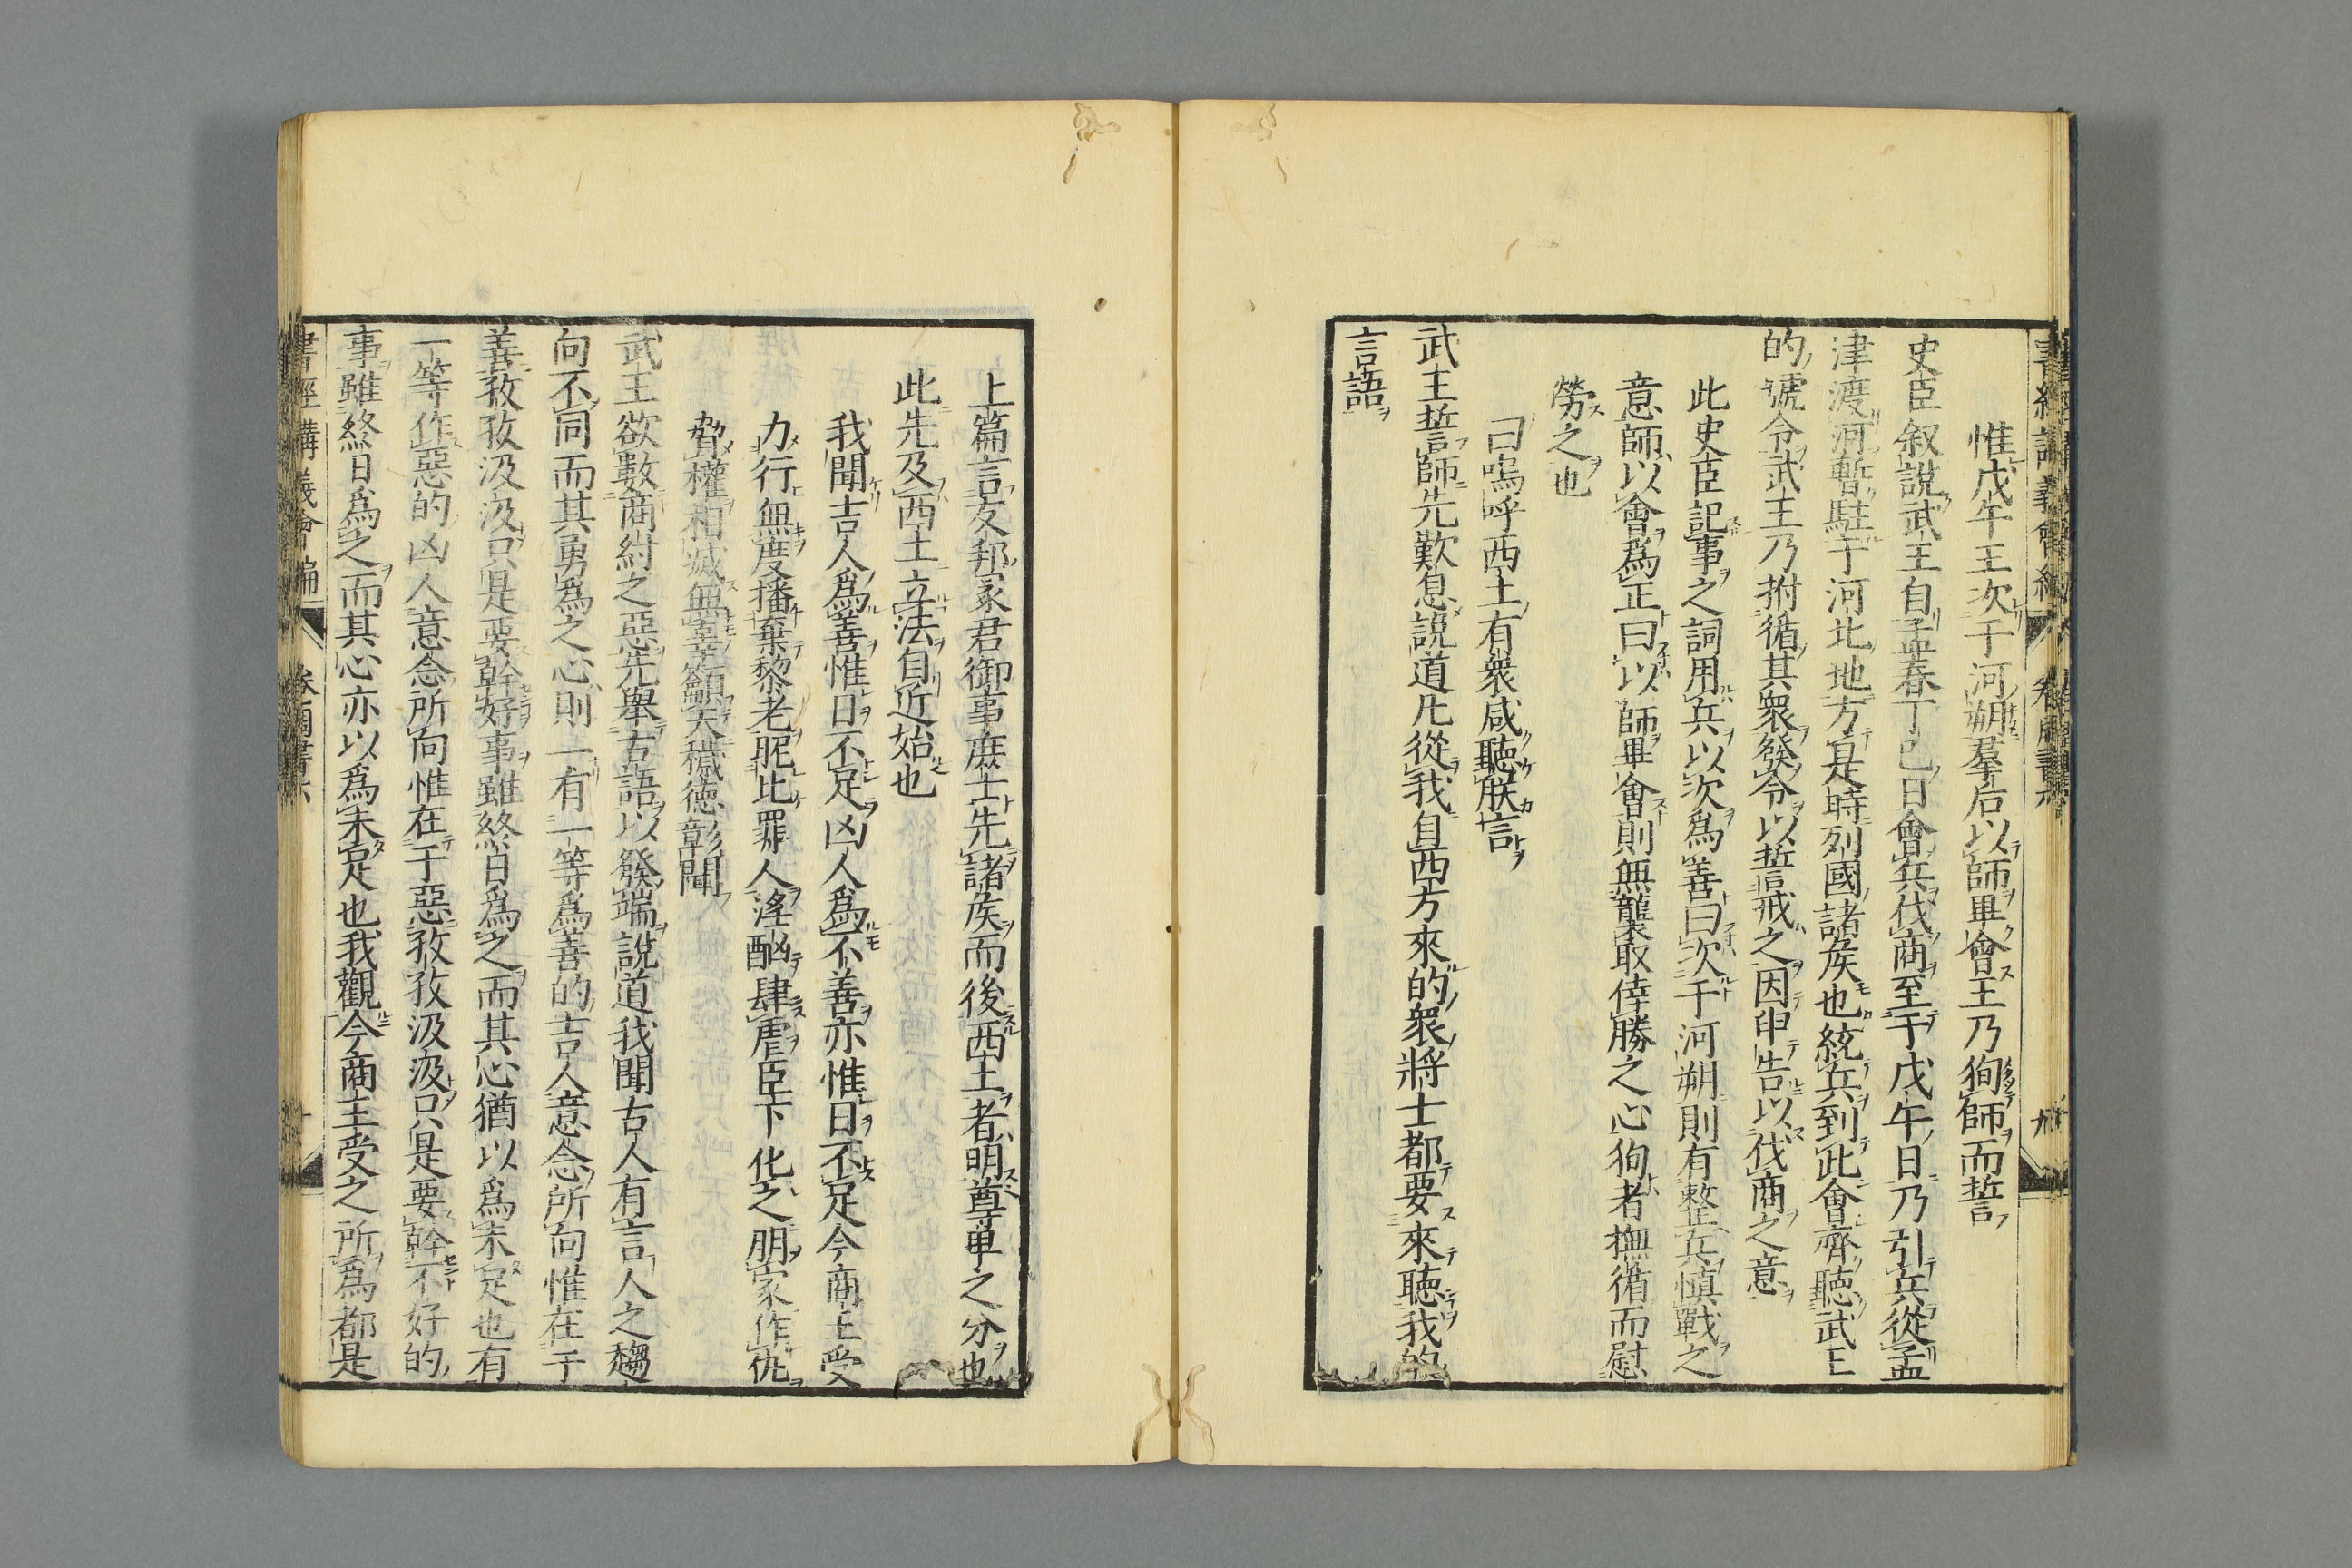 惟戊午王次于河朔羣后以師畢會王乃徇師而誓
史臣叙說武王自孟春丁巳日會兵伐商至于戊午日乃引兵從孟
津渡河暫駐于河北地方是時列國諸侯也統兵到此會齊聽武王
的號令武王乃拊循其衆發令以誓戒之因申告以伐商之意
此史臣記事之詞用兵以次爲善曰次于河朔則有整兵慎戰之
意師以會爲正曰以師畢會則無襲取倖勝之心徇者撫循而慰
勞之也
曰嗚呼西土有衆咸聽朕言
武王誓師先歎息說道凡從我自西方來的衆將士都要來聽我的
言語
上篇言友邦冢君御事庶士先諸侯而後西土者明尊卑之分也
此先及西土立法自近始也
我聞吉人爲善惟日不足凶人爲不善亦惟日不足今商王受
力行無度播棄黎老昵比罪人淫酗肆虐臣下化之朋家作仇
脅權相滅無辜籲天穢德彰聞
武王欲數商紂之惡先舉古語以發端說道我聞古人有言人之趨
向不同而其勇爲之心則一有一等爲善的吉人意念所向惟在于
善孜孜汲汲只是要幹好事雖終日爲之而其心猶以爲未足也有
一等作惡的凶人意念所向惟在于惡孜孜汲汲只是要幹不好的
事雖終日爲之而其心亦以爲未足也我觀今商王受之所爲都是
書經講義會編